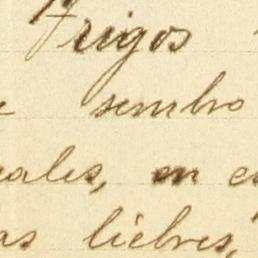 Trigos
sembro
ales, en
as liebres,